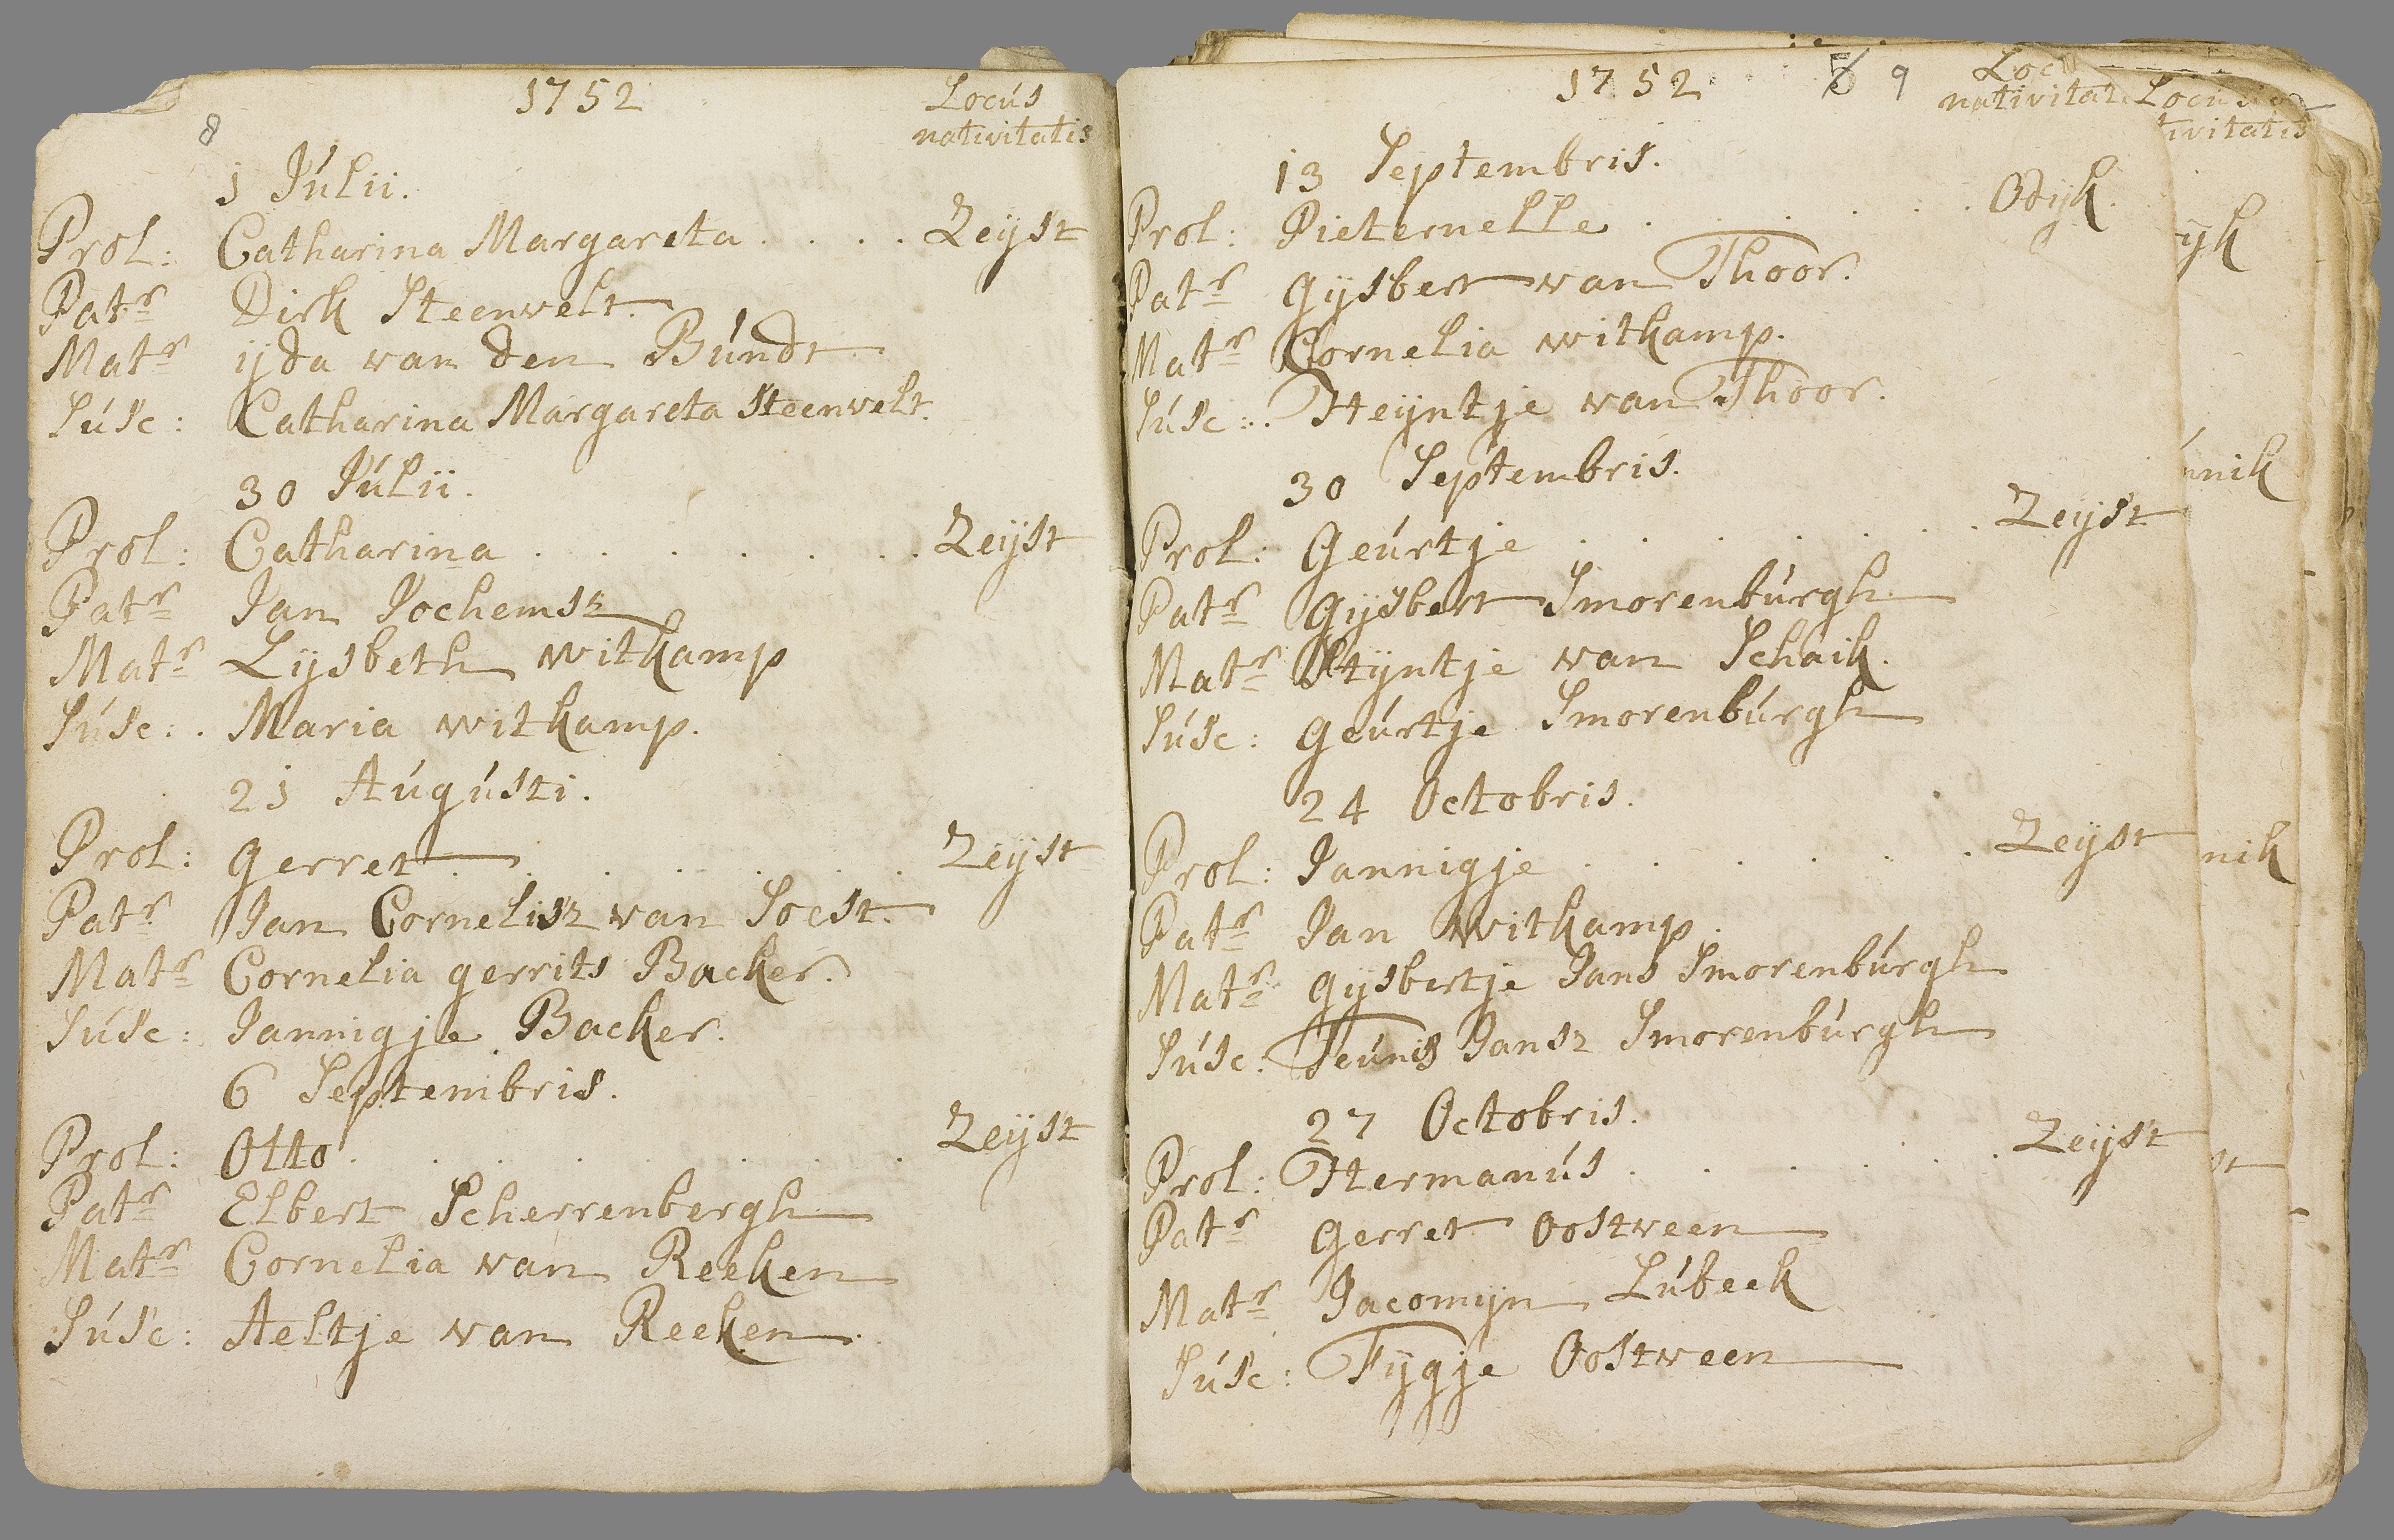 1752 Locús
8 nativitatis
1 Júlii.
Prol: Catharina Margareta . . . . Zeijst
Patr Dirk Steenvelt.
Matr ijda van den Búndt
Súsc: Catharina Margareta Steenvelt.
30 Júlii.
Prol: Catharina . . . . . . . Zeijst
Patr Jan Jochemsz
Matr Lijsbeth witkamp
Súsc: . Maria witkamp.
21 Aúgústi.
Prol: gerret . . . . . . . Zeijst
Patr Jan Cornelisz van Soest.
Matr Cornelia gerrits Backer.
Súsc: Jannigje Backer.
6 Septembris.
Prol: Otto . . . . . . . . Zeijst
Patr Elbert Scherrenbergh
Matr Cornelia van Reeken
Súsc: Aeltje van Reeken.
1752 9 Locu
nativitat
13 Septembris.
Prol: Pieternelle . . . . . . Odijk.
Patr gijsbert van Thoor.
Matr Cornelia witkamp.
Súsc: . Heijntje van Thoor.
30 Septembris.
Prol: Geúrtje . . . . . . . Zeijst
Patr gijsbert Smorenbúrgh
Matr Stijntje van Schaik.
Súsc: geúrtje Smorenbúrgh
24 Octobris.
Prol: Jannigje . . . . . . Zeijst
Patr Jan witkamp.
Matr gijsbertje Jans Smorenbúrgh
Súsc: Teúnis Jansz Smorenbúrgh
27 Octobris.
Prol: Hermanús . . . . . . Zeijst
Patr gerret Oostveen
Matr Jacomijn Lúbeek
Súsc: Fijgje Oostveen
Locus
tivitatis
ijk
nnik
nik
st